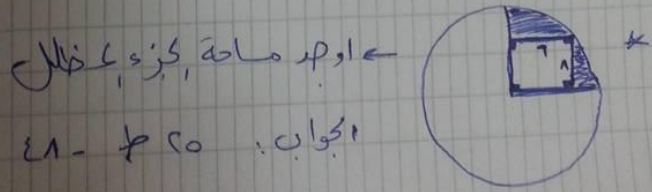 * ← اوجد مساحة الجزء المظلل
٦
٨
الجواب: ٢٥ ط - ٤٨